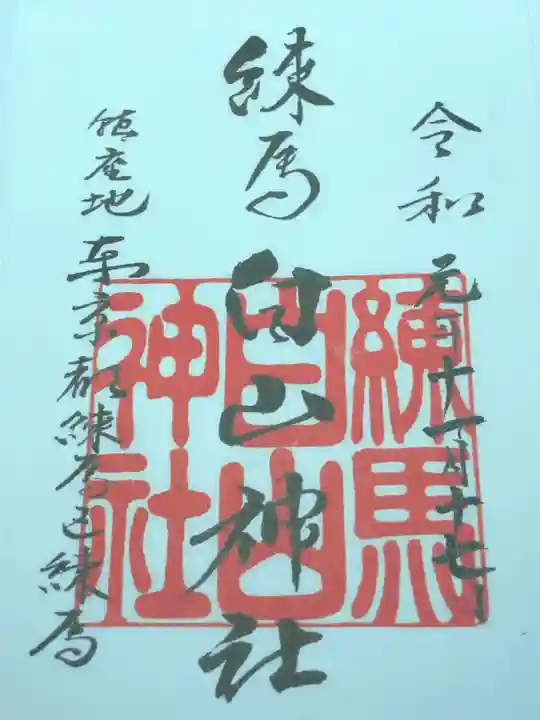 令和元年十一月十七日
練馬白山神社
鎮座地 東京都練馬区練馬
練馬
白山
神社